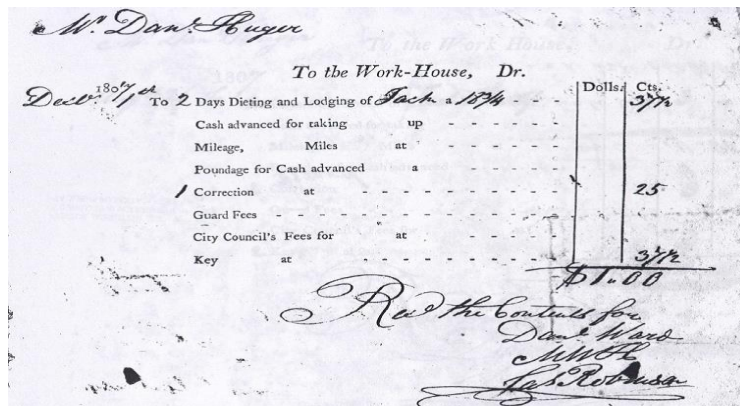 Mr. Danl. Huger
To the Work-House, Dr.
Dolls. Cts.
Decr. 1807 To 2 Days Dieting and Lodging of Jack a 18 3/4 37 1/2
Cash advanced for taking up
Mileage, Miles at
Poundage for Cash advanced a
1 Correction at 25
Guard Fees
City Council's Fees for at
Key at 37 1/2
$1.00
Recd the Contents for
Danl. Ward
MWH
Jas Robinson